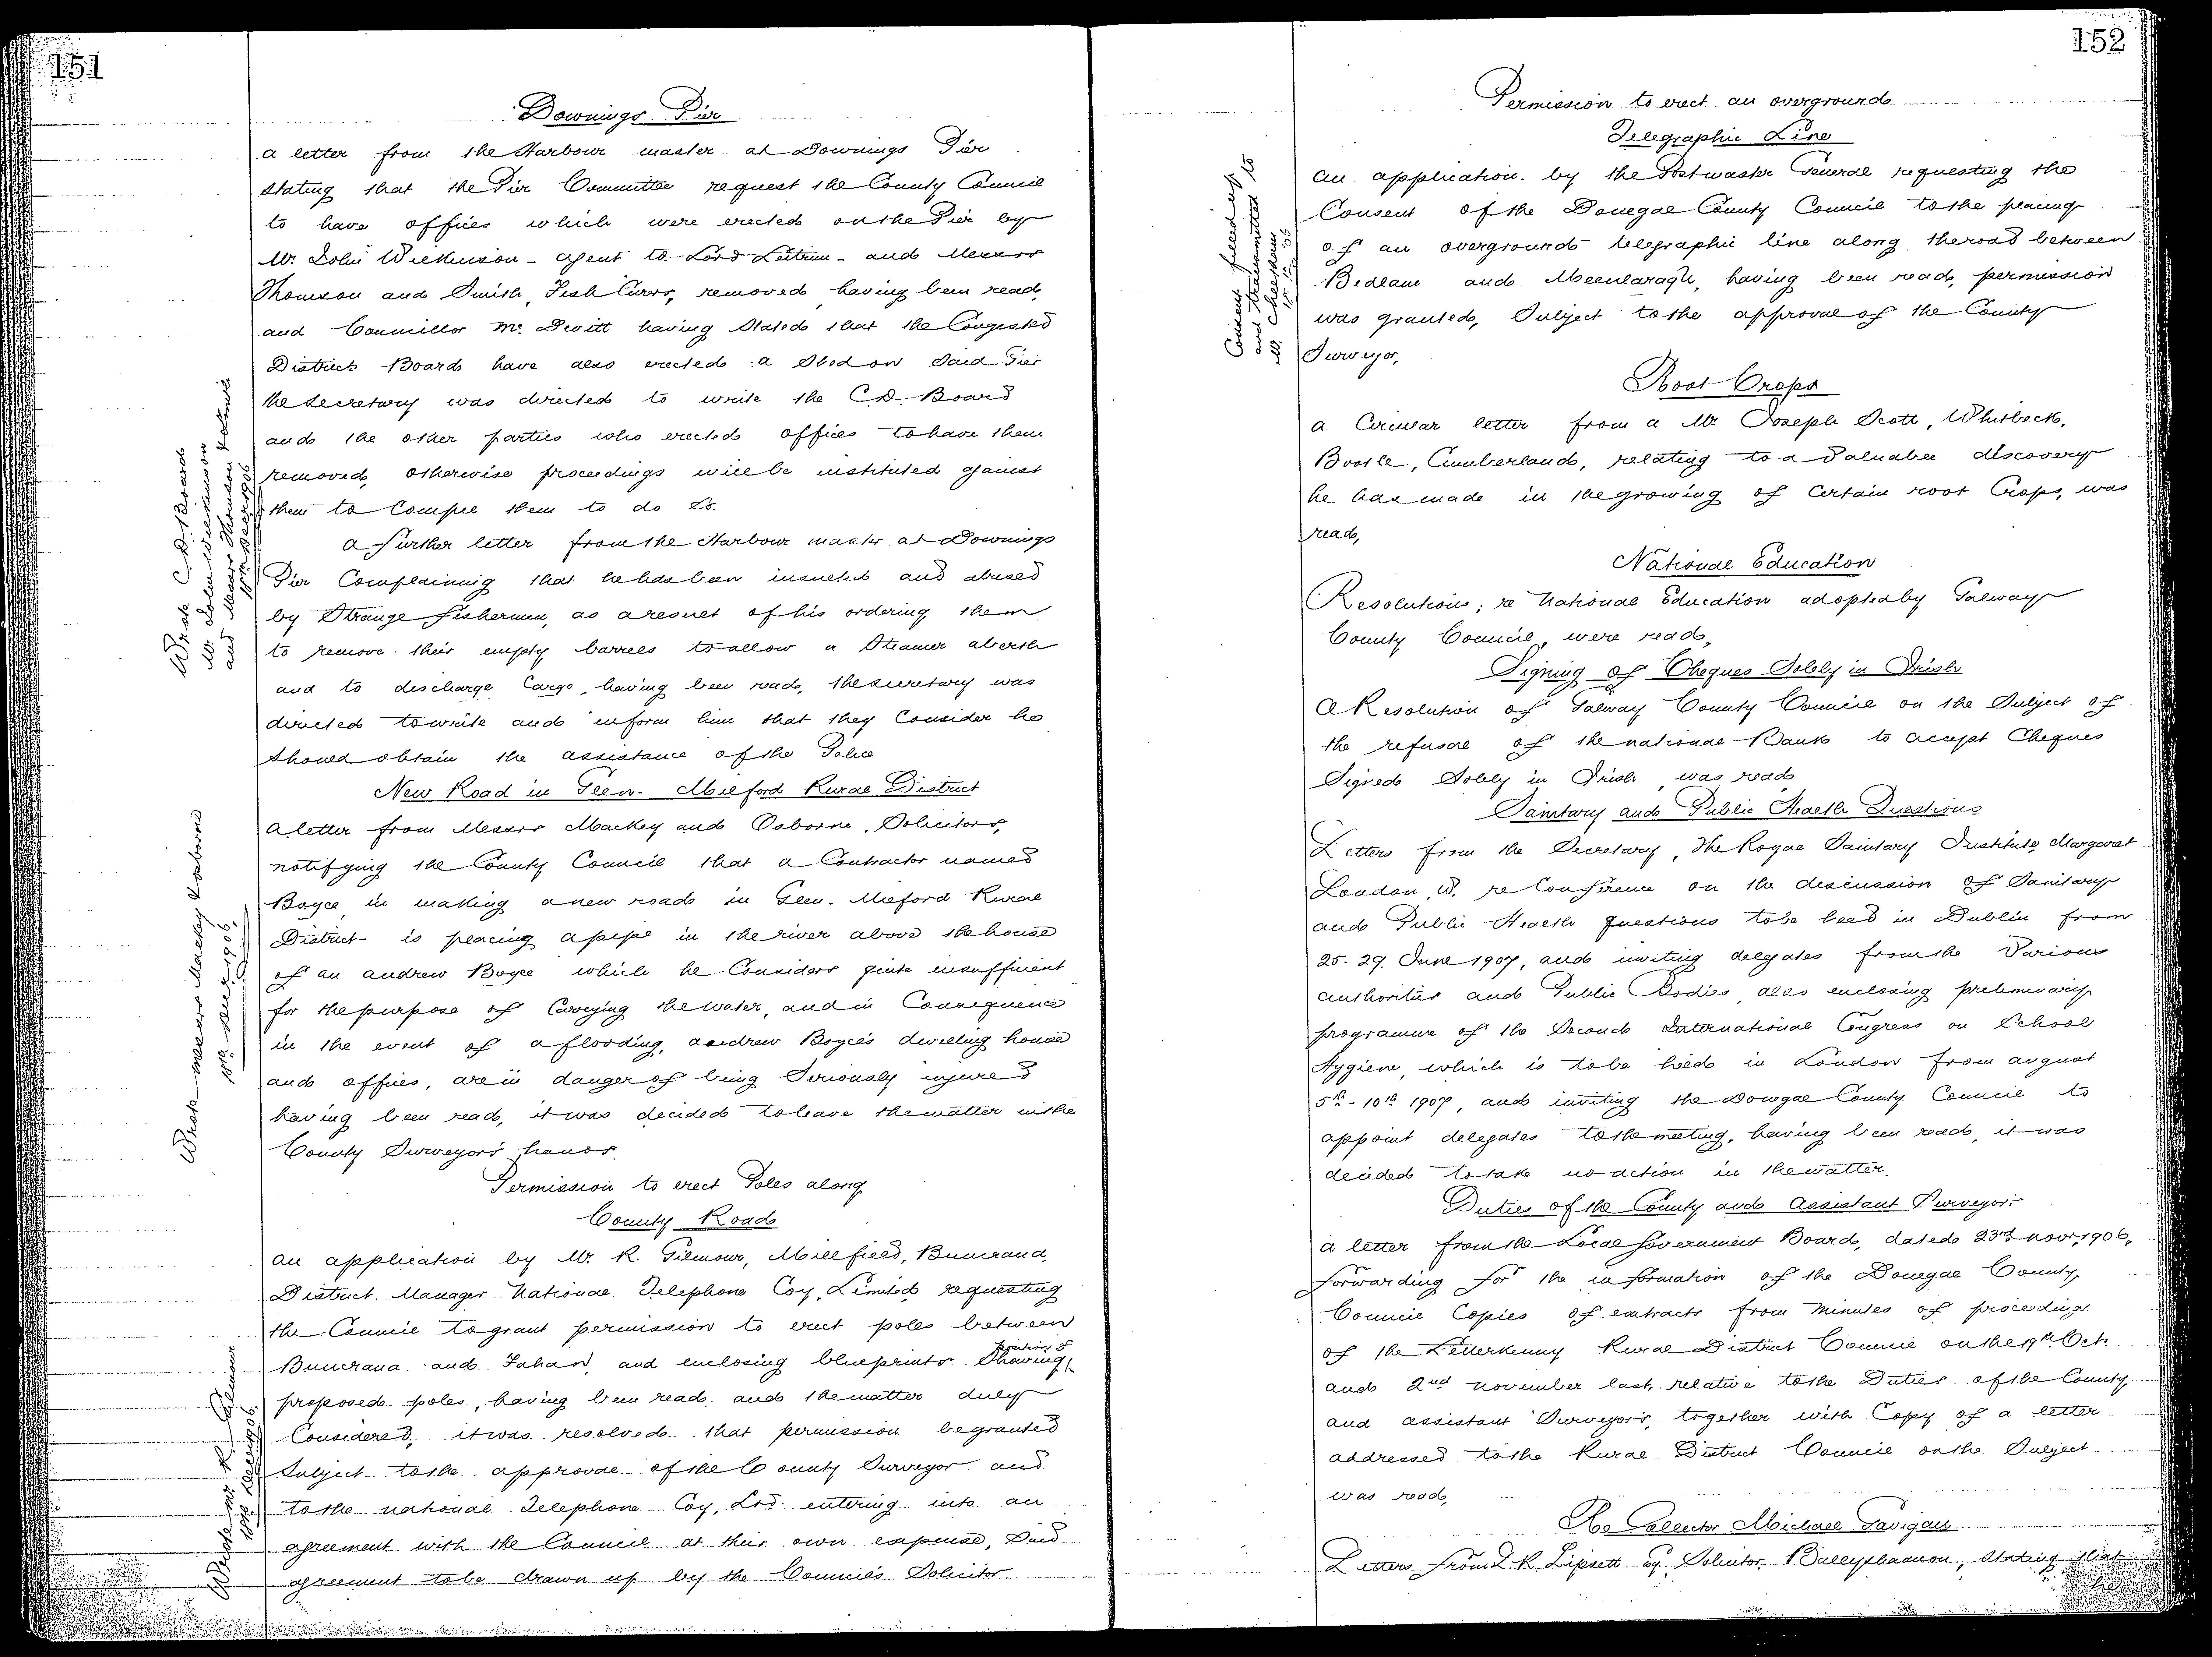 151
Downings Pier
a letter from the Harbour master at Downings Pier
stating that the Pier Committee request the County Council
to have offices which were erected on the Pier by
Mr. John Wilkinson - agent to Lord Leitrim - and Messrs
Thomson and Smith, Fish Curers, removed, having been read,
and Councillor McDevitt having stated that the Congested
Districts Board have also erected a Shed on said Pier
the Secretary was directed to write the C.D. Board
and the other parties who erected offices to have them
removed, otherwise proceedings will be instituted against
them to Compel them to do so.
Wrote C.D. Board
Mr. John Wilkinson
and Messrs Thomson &
18th Decr 1906
a further letter from the Harbour master at Downings
Pier Complaining that he has been insulted and abused
by Strange fishermen, as a result of his ordering them
to remove their empty barrels to allow a Steamer a berth
and to discharge Cargo, having been read, the secretary was
directed to write and inform him that they Consider he
should obtain the assistance of the Police
New Road in Glen - Milford Rural District
a letter from Messrs Mackey and Osborne, Solicitors,
notifying the County Council that a Contractor named
Boyce in making a new road in Glen - Milford Rural
District - is placing a pipe in the river above the house
of an andrew Boyce which he Considers quite insufficient
for the purpose of Carrying the water, and in Consequence
in the event of a flooding, andrew Boyce's dwelling house
and offices, are in danger of being Seriously injured
having been read, it was decided to leave the matter in the
County Surveyor's hands.
Wrote messrs Macky & osborne
18th Decr 1906.
Permission to erect Poles along
County Road
an application by Mr. R. Gilmour, Millfield, Buncrana,
District Manager National Telephone Coy, Limited requesting
the Council to grant permission to erect poles between
Buncrana and Fahan, and enclosing blueprints Showing position of
proposed poles, having been read and the matter duly
Considered, it was resolved that permission be granted
Subject to the approval of the County Surveyor and
to the national Telephone Coy, Ltd. entering into an
agreement with the Council at their own expense, Said
agreement to be drawn up by the Council's Solicitor
Wrote Mr R. Gilmour
18th Decr 1906.
152
Permission to erect an overground
Telegraphic Line
an application by the Postmaster General requesting the
Consent of the Donegal County Council to the placing
of an overground telegraphic line along the road between
Bedlam and Meenlaragh, having been read, permission
was granted, Subject to the approval of the County
Surveyor,
Consent filled up
and transmitted to
Mr. Cheesham
18.12.06
Root-Crops
a Circular letter from a Mr. Joseph Scott, Whitbeck,
Bootle, Cumberland, relating to a Valuable discovery
he has made in the growing of Certain root Crops, was
read,
National Education
Resolutions; re National Education adopted by Galway
County Council, were read,
Signing of Cheques Solely in Irish
A Resolution of Galway County Council on the Subject of
the refusal of the national Bank to accept Cheques
Signed Solely in Irish, was read
Sanitary and Public Health Questions
Letters from the Secretary, The Royal Sanitary Institute, Margaret
London, W. re Conference on the discussion of Sanitary
and Public Health questions to be held in Dublin from
25-29. June 1907, and inviting delegates from the Various
authorities and Public Bodies, also enclosing preliminary
programme of the Second International Congress on School
Hygiene, which is to be held in London from august
5th - 10th 1907, and inviting the Donegal County Council to
appoint delegates to the meeting, having been read, it was
decided to take no action in the matter.
Duties of the County and Assistant Surveyors
a letter from the Local Government Board, dated 23rd novr, 1906,
forwarding for the information of the Donegal County
Council Copies of extracts from minutes of proceedings
of the Letterkenny Rural District Council on the 19th Oct.
and 2nd november last, relative to the Duties of the County
and assistant Surveyors, together with Copy of a letter
addressed to the Rural District Council on the Subject
was read,
Re Collector Michael Gavigan
Letters from L. R. Lipsett Esq. Solicitor, Ballyshannon, Stating that
he